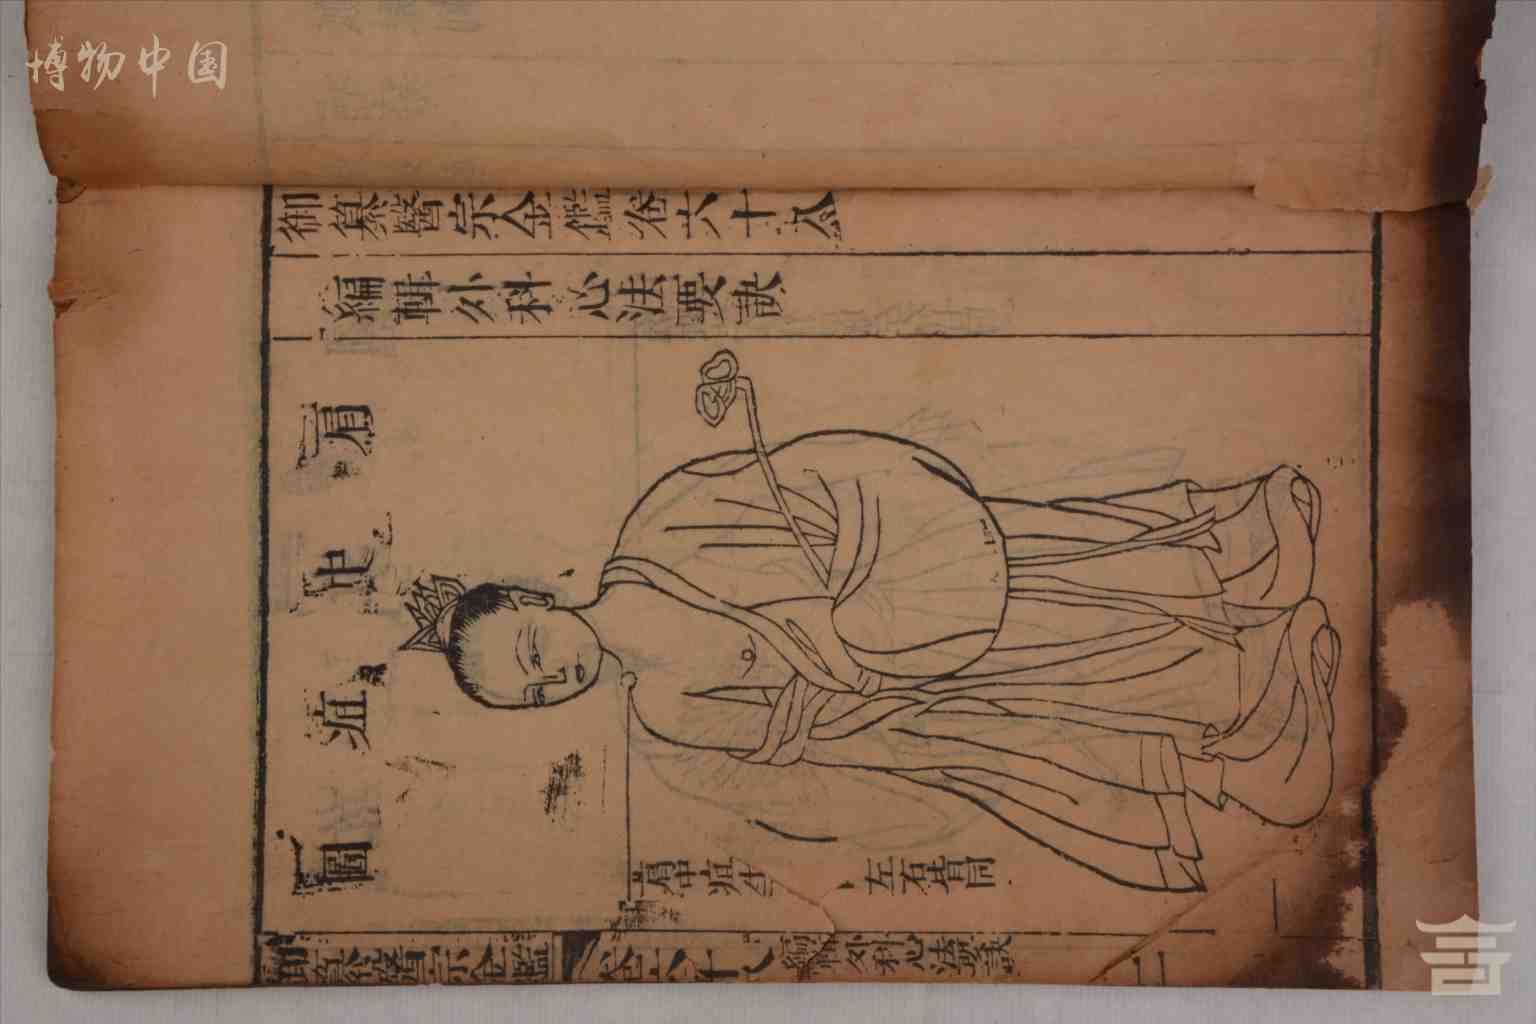 博物中国
御纂醫宗金鑑卷六十八
編輯外科心法要訣
肩中疽圖
肩中疽生
左右同
御纂醫宗金鑑 卷六十八 編輯外科心法要訣